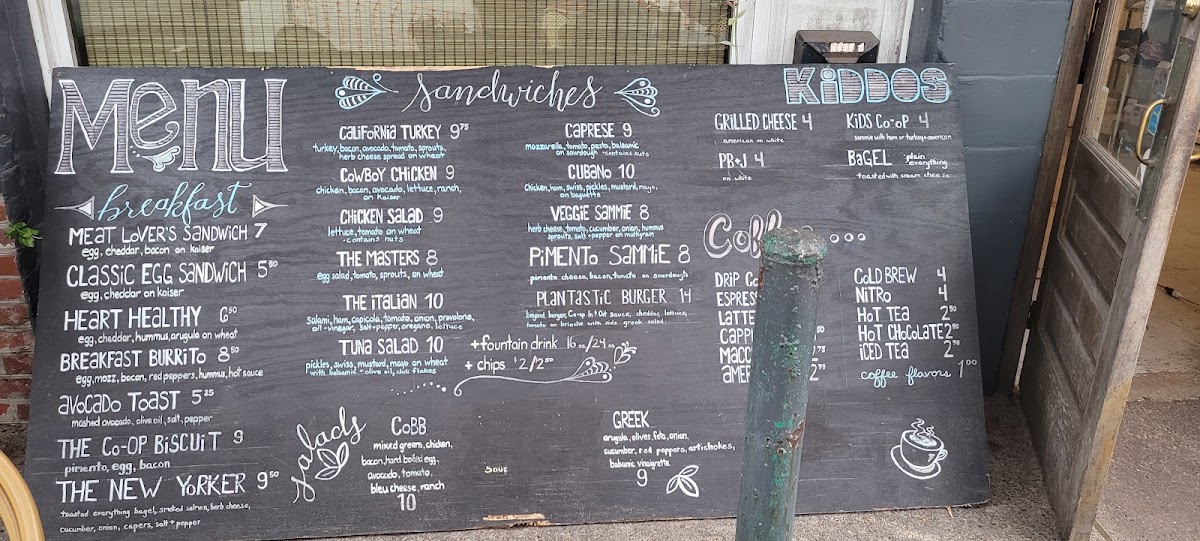 Menu
breakfast
MEAT LOVER'S SANDWICH 7
egg, cheddar, bacon on kaiser
CLASSIC EGG SANDWICH 5 50
egg, cheddar on kaiser
HEART HEALTHY 6 50
egg, cheddar, hummus, arugula on wheat
BREAKFAST BURRITO 8 50
egg, mozz, bacon, red peppers, hummus, hot sauce
AVOCADO TOAST 5 25
mashed avocado, olive oil, salt, pepper
THE CO-OP BISCUIT 9
pimento, egg, bacon
THE NEW YORKER 9 50
toasted everything bagel, smoked salmon, herb cheese,
cucumber, onion, capers, salt + pepper
Sandwiches
CALIFORNIA TURKEY 9 75
turkey, bacon, avocado, tomato, sprouts,
herb cheese spread on wheat
COWBOY CHICKEN 9
chicken, bacon, avocado, lettuce, ranch,
on Kaiser
CHICKEN SALAD 9
lettuce, tomato on wheat
- contains nuts
THE MASTERS 8
egg salad, tomato, sprouts, on wheat
THE ITALIAN 10
salami, ham, capicola, tomato, onion, provolone,
oil + vinegar, salt + pepper, oregano, lettuce
TUNA SALAD 10
pickles, swiss, mustard, mayo on wheat
with balsamic + olive oil, chili flakes
CAPRESE 9
mozzarella, tomato, pesto, balsamic
on sourdough *contains nuts
CUBANO 10
Chicken, ham, swiss, pickles, mustard, mayo,
on baguette
VEGGIE SAMMIE 8
herb cheese, tomato, cucumber, onion, hummus
sprouts, salt + pepper on multigrain
PIMENTO SAMMIE 8
pimento cheese, bacon, tomato on sourdough
PLANTASTIC BURGER 14
beyond burger, Co-op In + Out sauce, cheddar, lettuce,
tomato on brioche with side greek salad
+ fountain drink 16 oz/24 oz
+ chips $2/2 50
salads
COBB
mixed greens, chicken,
bacon, hard boiled egg,
avocado, tomato,
bleu cheese, ranch
10
Soup
GREEK
arugula, olives, feta, onion,
cucumber, red peppers, artichokes,
balsamic vinaigrette
9
KiDDOS
GRILLED CHEESE 4
american on white
PB+J 4
on white
KiDS Co-op 4
sammie with ham or turkey + american
BAGEL plain everything
toasted with cream cheese
DRIP
COLD BREW 4
NITRO 4
HOT TEA 2 50
HOT CHOCOLATE 2 50
ICED TEA 2 50
coffee flavors 1 00